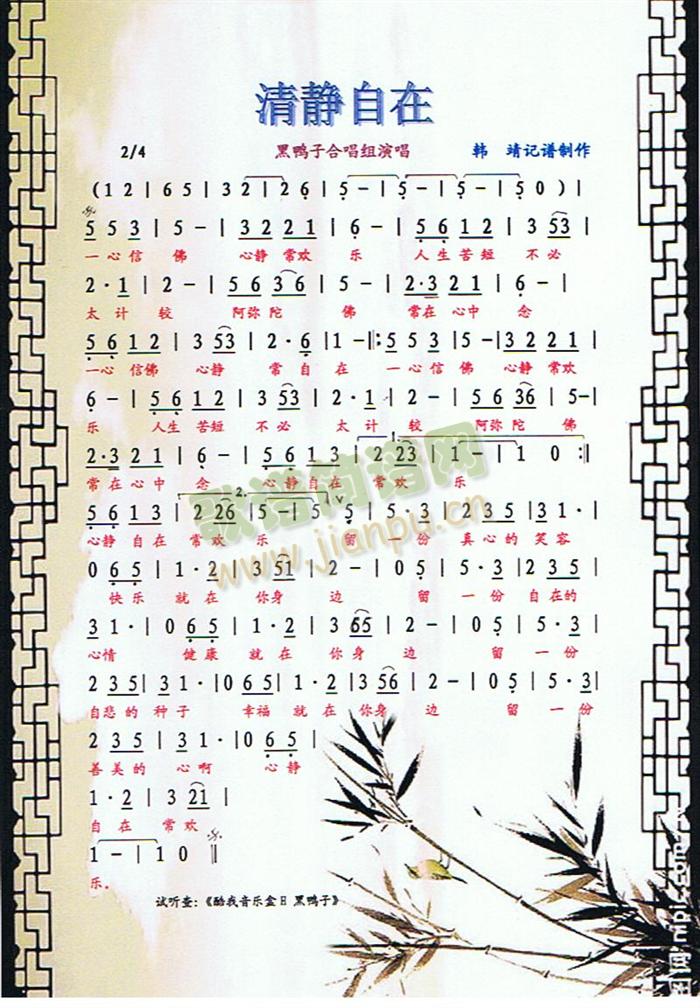 清静自在
2/4 黑鸭子合唱组演唱 韩 靖记谱制作
( 1 2 | 6 5 | 3 2 | 2 6 | 5 - | 5 - | 5 - | 5 0 ) |
5 5 3 | 5 - | 3 2 2 1 | 6 - | 5 6 1 2 | 3 53 |
一心信 佛 心静 常欢 乐 人生 苦短 不 必
2 · 1 | 2 - | 5 6 3 6 | 5 - | 2·3 2 1 | 6 - |
太 计 较 阿弥 陀 佛 常在 心中 念
5 6 1 2 | 3 53 | 2 · 6 | 1 - ‖: 5 5 3 | 5 - | 3 2 2 1 |
一心 信佛 心静 常 自 在 一心信 佛 心静 常欢
6 - | 5 6 1 2 | 3 53 | 2 · 1 | 2 - | 5 6 36 | 5 - |
乐 人生 苦短 不 必 太 计 较 阿弥 陀 佛
2·3 2 1 | 6 - | 5 6 1 3 | 2 23 | 1 - | 1 0 :‖
常在 心中 念 心静 自在 常 欢 乐
5 6 1 3 | 2 26 | 5 - | 5 5 | 5 · 3 | 2 3 5 | 3 1 · |
心静 自在 常 欢 乐 留 一 份 真心的 笑容
0 6 5 | 1 · 2 | 3 51 | 2 - | 0 5 | 5 · 3 | 2 3 5 |
快乐 就 在 你 身 边 留 一 份 自在的
3 1 · | 0 6 5 | 1 · 2 | 3 65 | 2 - | 0 5 | 5 · 3 |
心情 健康 就 在 你 身 边 留 一 份
2 3 5 | 3 1 · | 0 6 5 | 1 · 2 | 3 56 | 2 - | 0 5 | 5 · 3 |
自悲 的 种子 幸福 就 在 你 身 边 留 一 份
2 3 5 | 3 1 · | 0 6 5 |
善美 的 心啊 心静
1 · 2 | 3 21 |
自 在 常 欢
1 - | 1 0 ‖
乐.
试听查:《酷我音乐盒日 黑鸭子》
歌谱简谱网
www.jianpu.cn